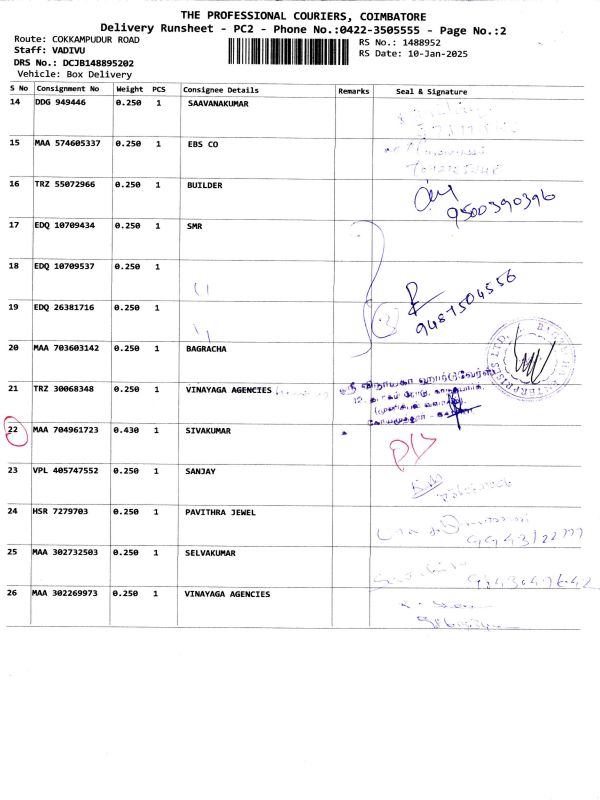 THE PROFESSIONAL COURIERS, COIMBATORE
Delivery Runsheet - PC2 - Phone No.:0422-3505555 - Page No.:2
Route: COKKAMPUDUR ROAD
RS No.: 1488952
Staff: VADIVU
RS Date: 10-Jan-2025
DRS No.: DCJB148895202
Vehicle: Box Delivery
S No Consignment No Weight PCS Consignee Details Remarks Seal & Signature
14 DDG 949446 0.250 1 SAAVANAKUMAR
15 MAA 574605337 0.250 1 EBS CO
16 TRZ 55072966 0.250 1 BUILDER
9500390396
17 EDQ 10709434 0.250 1 SMR
18 EDQ 10709537 0.250 1
9487504556
19 EDQ 26381716 0.250 1
20 MAA 703603142 0.250 1 BAGRACHA
21 TRZ 30068348 0.250 1 VINAYAGA AGENCIES
ஸ்ரீ விநாயகா
22 MAA 704961723 0.430 1 SIVAKUMAR
23 VPL 405747552 0.250 1 SANJAY
24 HSR 7279703 0.250 1 PAVITHRA JEWEL
25 MAA 302732503 0.250 1 SELVAKUMAR
26 MAA 302269973 0.250 1 VINAYAGA AGENCIES